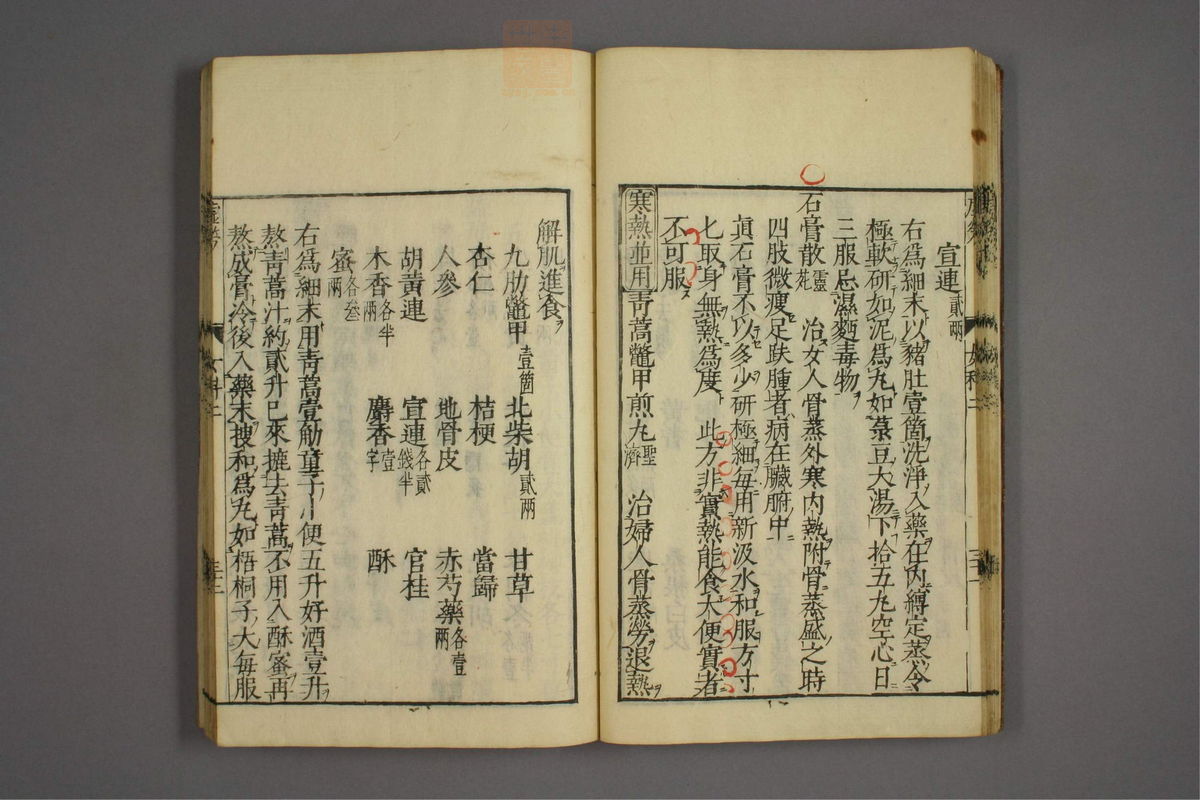 宣連貳兩
右爲細末以豬肚壹箇洗淨入藥在內縛定蒸令
極軟研如泥爲丸如菉豆大湯下拾五丸空心日
三服忌濕麪毒物
石膏散靈苑 治女人骨蒸外寒內熱附骨蒸盛之時
四肢微瘦足趺腫者病在臟腑中
眞石膏不以多少研極細每用新汲水和服方寸
七取身無熱爲度 此方非實熱能食大便實者
不可服
寒熱並用靑蒿鼈甲煎丸聖濟 治婦人骨蒸勞退熱
解肌進食
九肋鼈甲壹箇 北柴胡貳兩 甘草
杏仁 桔梗 當歸
人參 地骨皮 赤芍藥各壹兩
胡黃連 宣連各貳錢半 官桂
木香各半兩 麝香壹字 酥
蜜各叁兩
右爲細末用靑蒿壹觔童子小便五升好酒壹升
熬靑蒿汁約貳升已來摝去靑蒿不用入酥蜜再
熬成膏冷後入藥末搜和爲丸如梧桐子大每服
女科二
女科二